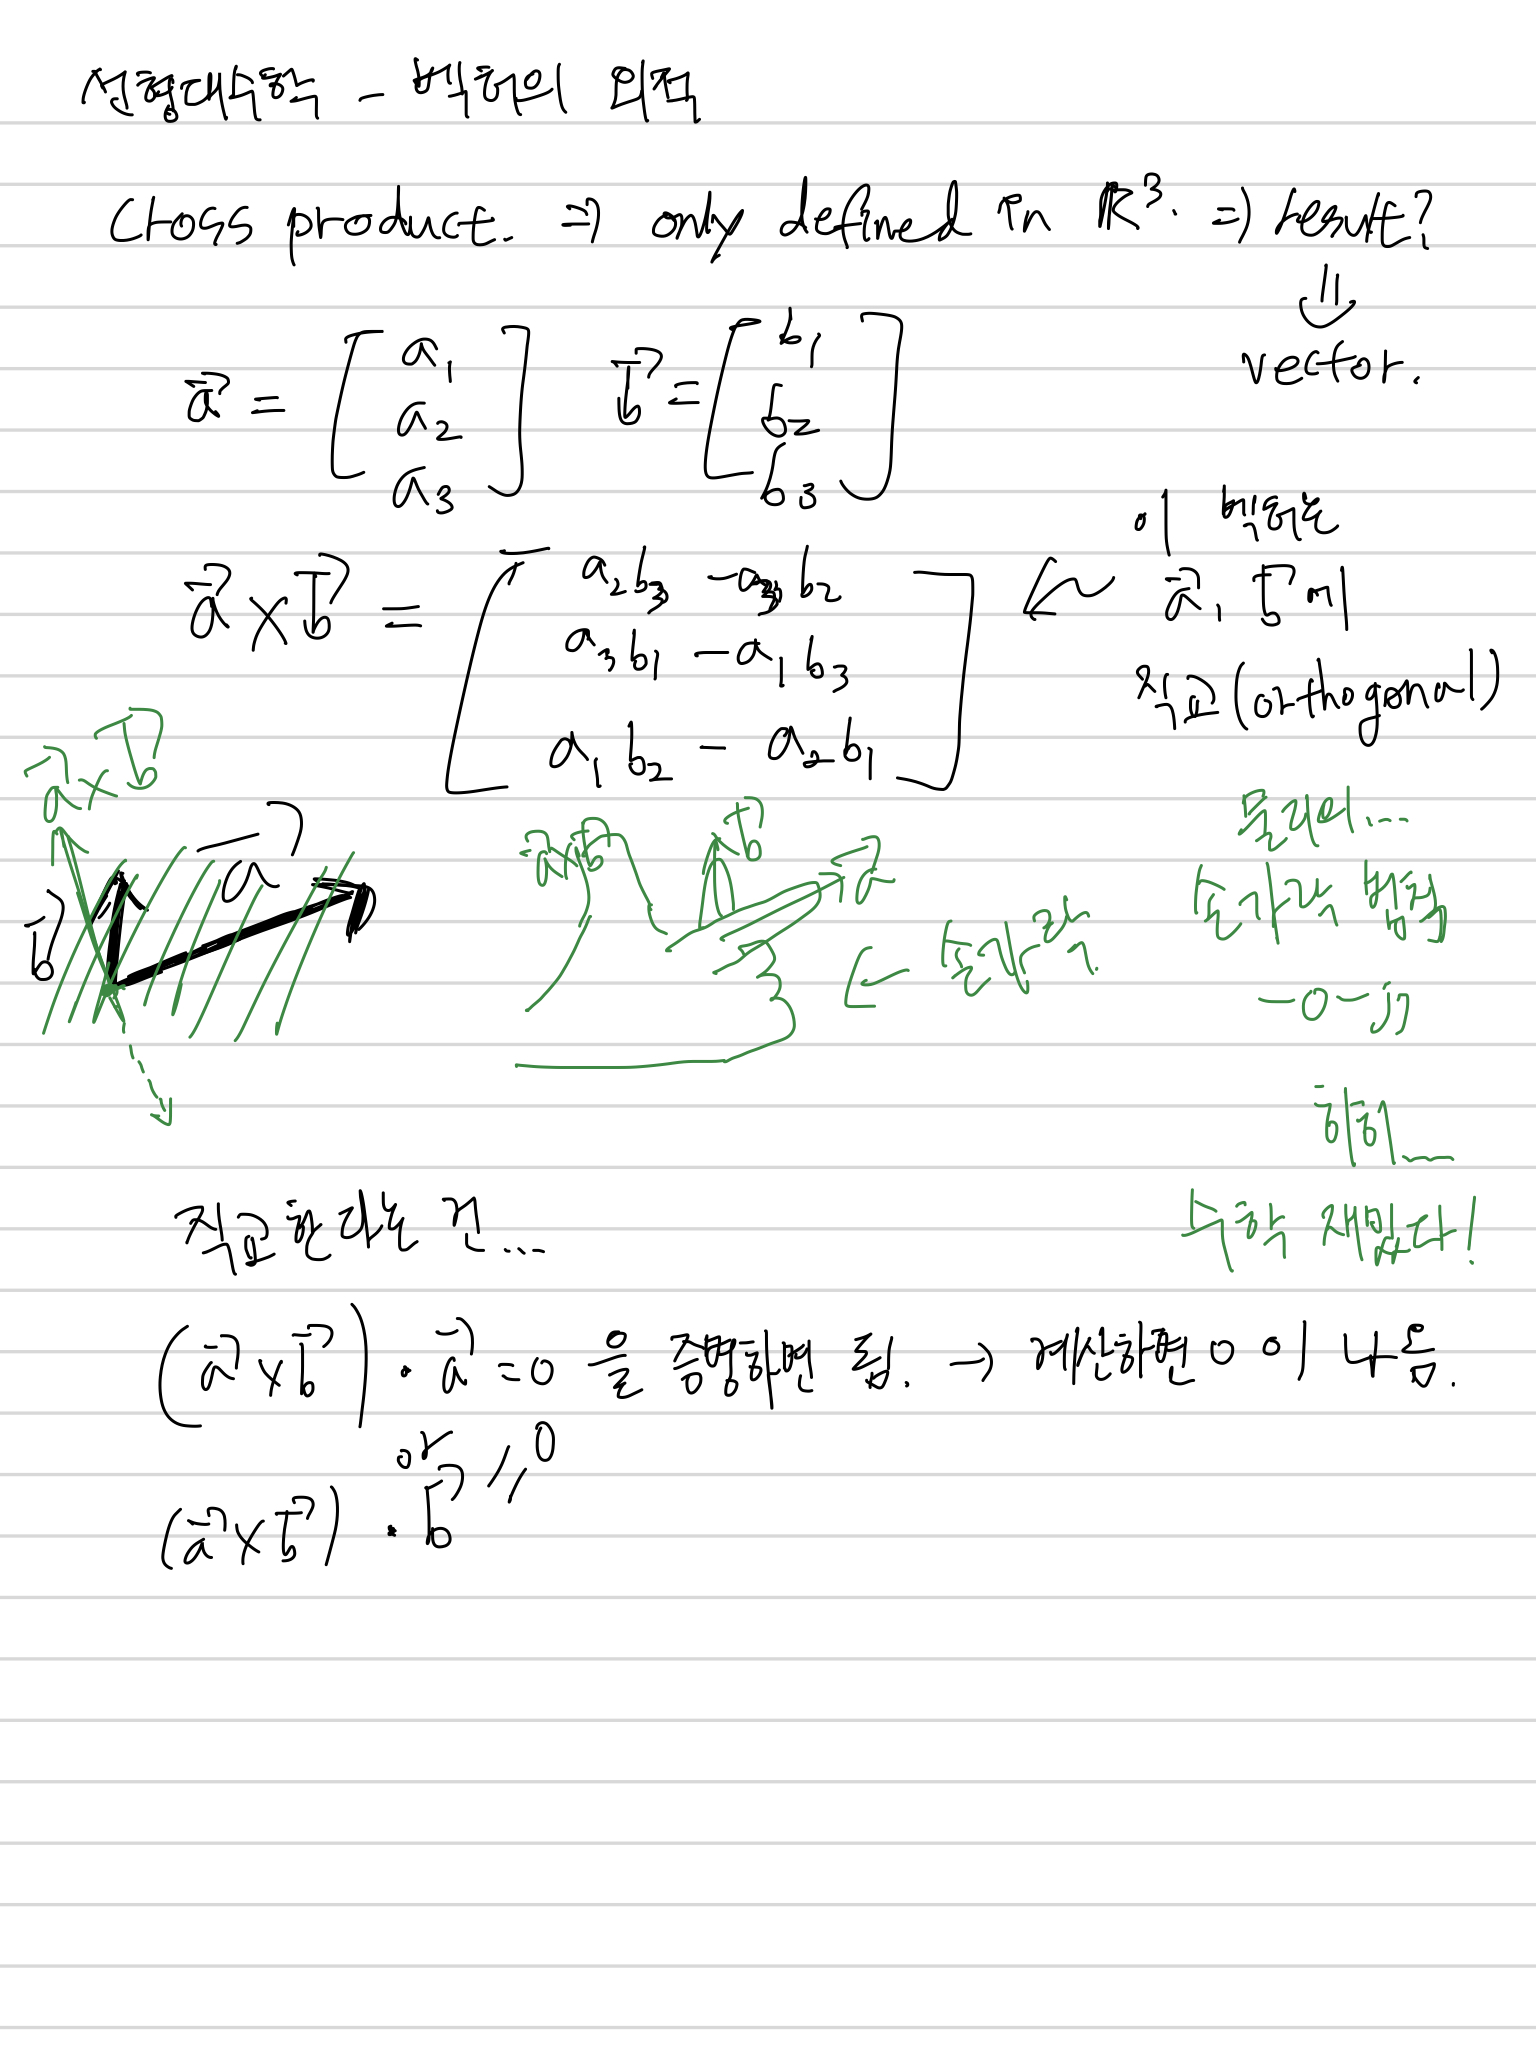 선형대수학 - 벡터의 외적
Cross product. ⇒ only defined in ℝ³. ⇒ result?
⇓
vector.
a⃗ = [a₁ a₂ a₃] b⃗ = [b₁ b₂ b₃]
a⃗ × b⃗ = [a₂b₃ - a₃b₂
a₃b₁ - a₁b₃
a₁b₂ - a₂b₁]
← 이 벡터는
a⃗, b⃗에
직교 (orthogonal)
a⃗ × b⃗
a⃗
b⃗
a⃗ × b⃗
b⃗
a⃗
← 손가락.
물리의...
손가락 법칙
-0-jj
히히__
수학 재밌다!
직교한다는 건...
(a⃗ × b⃗) · a⃗ = 0 을 증명하면 됨. → 계산하면 0 이 나옴.
와
(a⃗ × b⃗) · b⃗ = 0